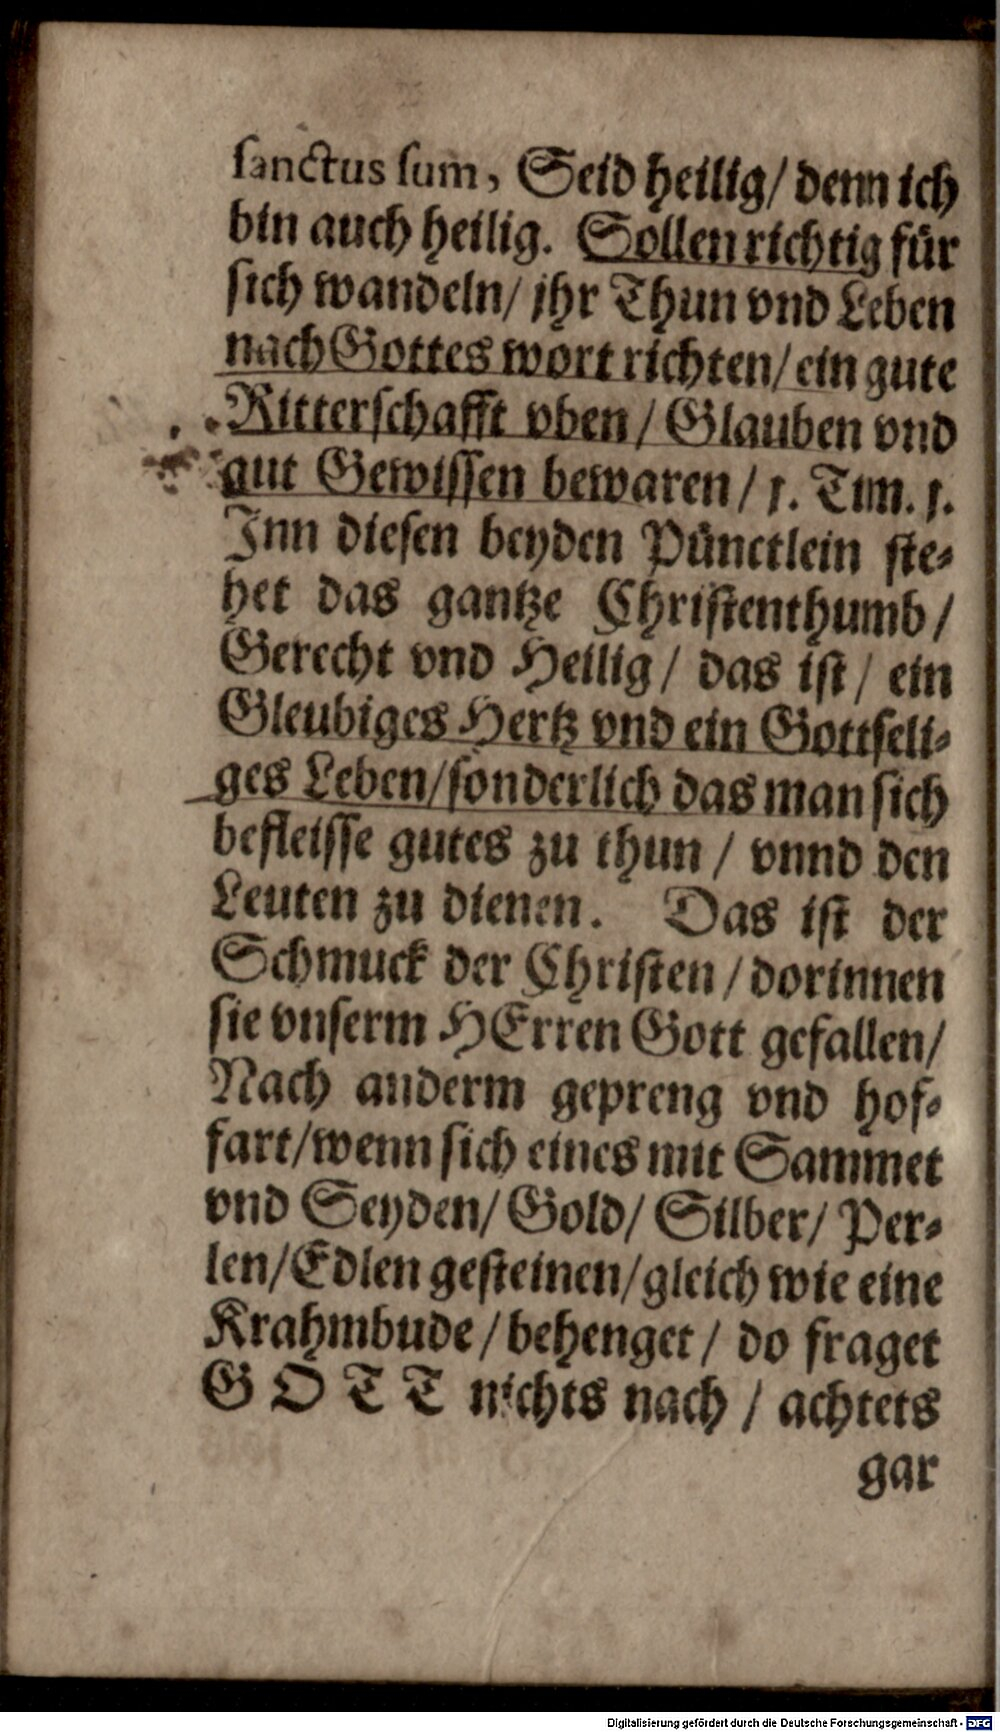 sanctus sum, Seid heilig/ denn ich
bin auch heilig. Sollen richtig für
sich wandeln/ jhr Thun vnd Leben
nach Gottes wort richten/ ein gute
Ritterschafft vben/ Glauben vnd
gut Gewissen bewaren/ 1. Tim. 1.
Inn diesen beyden Pünctlein ste-
het das gantze Christenthumb/
Gerecht vnd Heilig/ das ist/ ein
Gleubiges Hertz vnd ein Gottseli-
ges Leben/ sonderlich das man sich
befleisse gutes zu thun/ vnnd den
Leuten zu dienen. Das ist der
Schmuck der Christen/ dorinnen
sie vnserm HErren Gott gefallen/
Nach anderm gepreng vnd hof-
fart/ wenn sich eines mit Sammet
vnd Seyden/ Gold/ Silber/ Per-
len/ Edlen gesteinen/ gleich wie eine
Krahmbude/ behenget/ do fraget
GOTT nichts nach/ achtets
gar
Digitalisierung gefördert durch die Deutsche Forschungsgemeinschaft - DFG